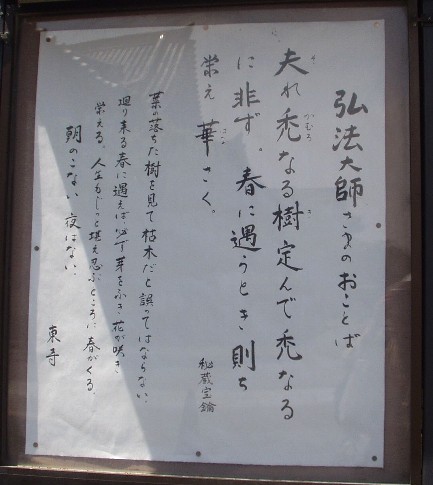 弘法大師さまのおことば
夫れ禿なる樹定んで禿なる
に非ず。春に遇うとき則ち
栄え華さく。
秘蔵宝鑰
葉の落ちた樹を見て枯木だと誤ってはならない。
廻り来る春に遇えば必ず芽をふき花が咲き、
栄える。人生もじっと堪え忍ぶところに春がくる。
朝のこない夜はない。
東寺